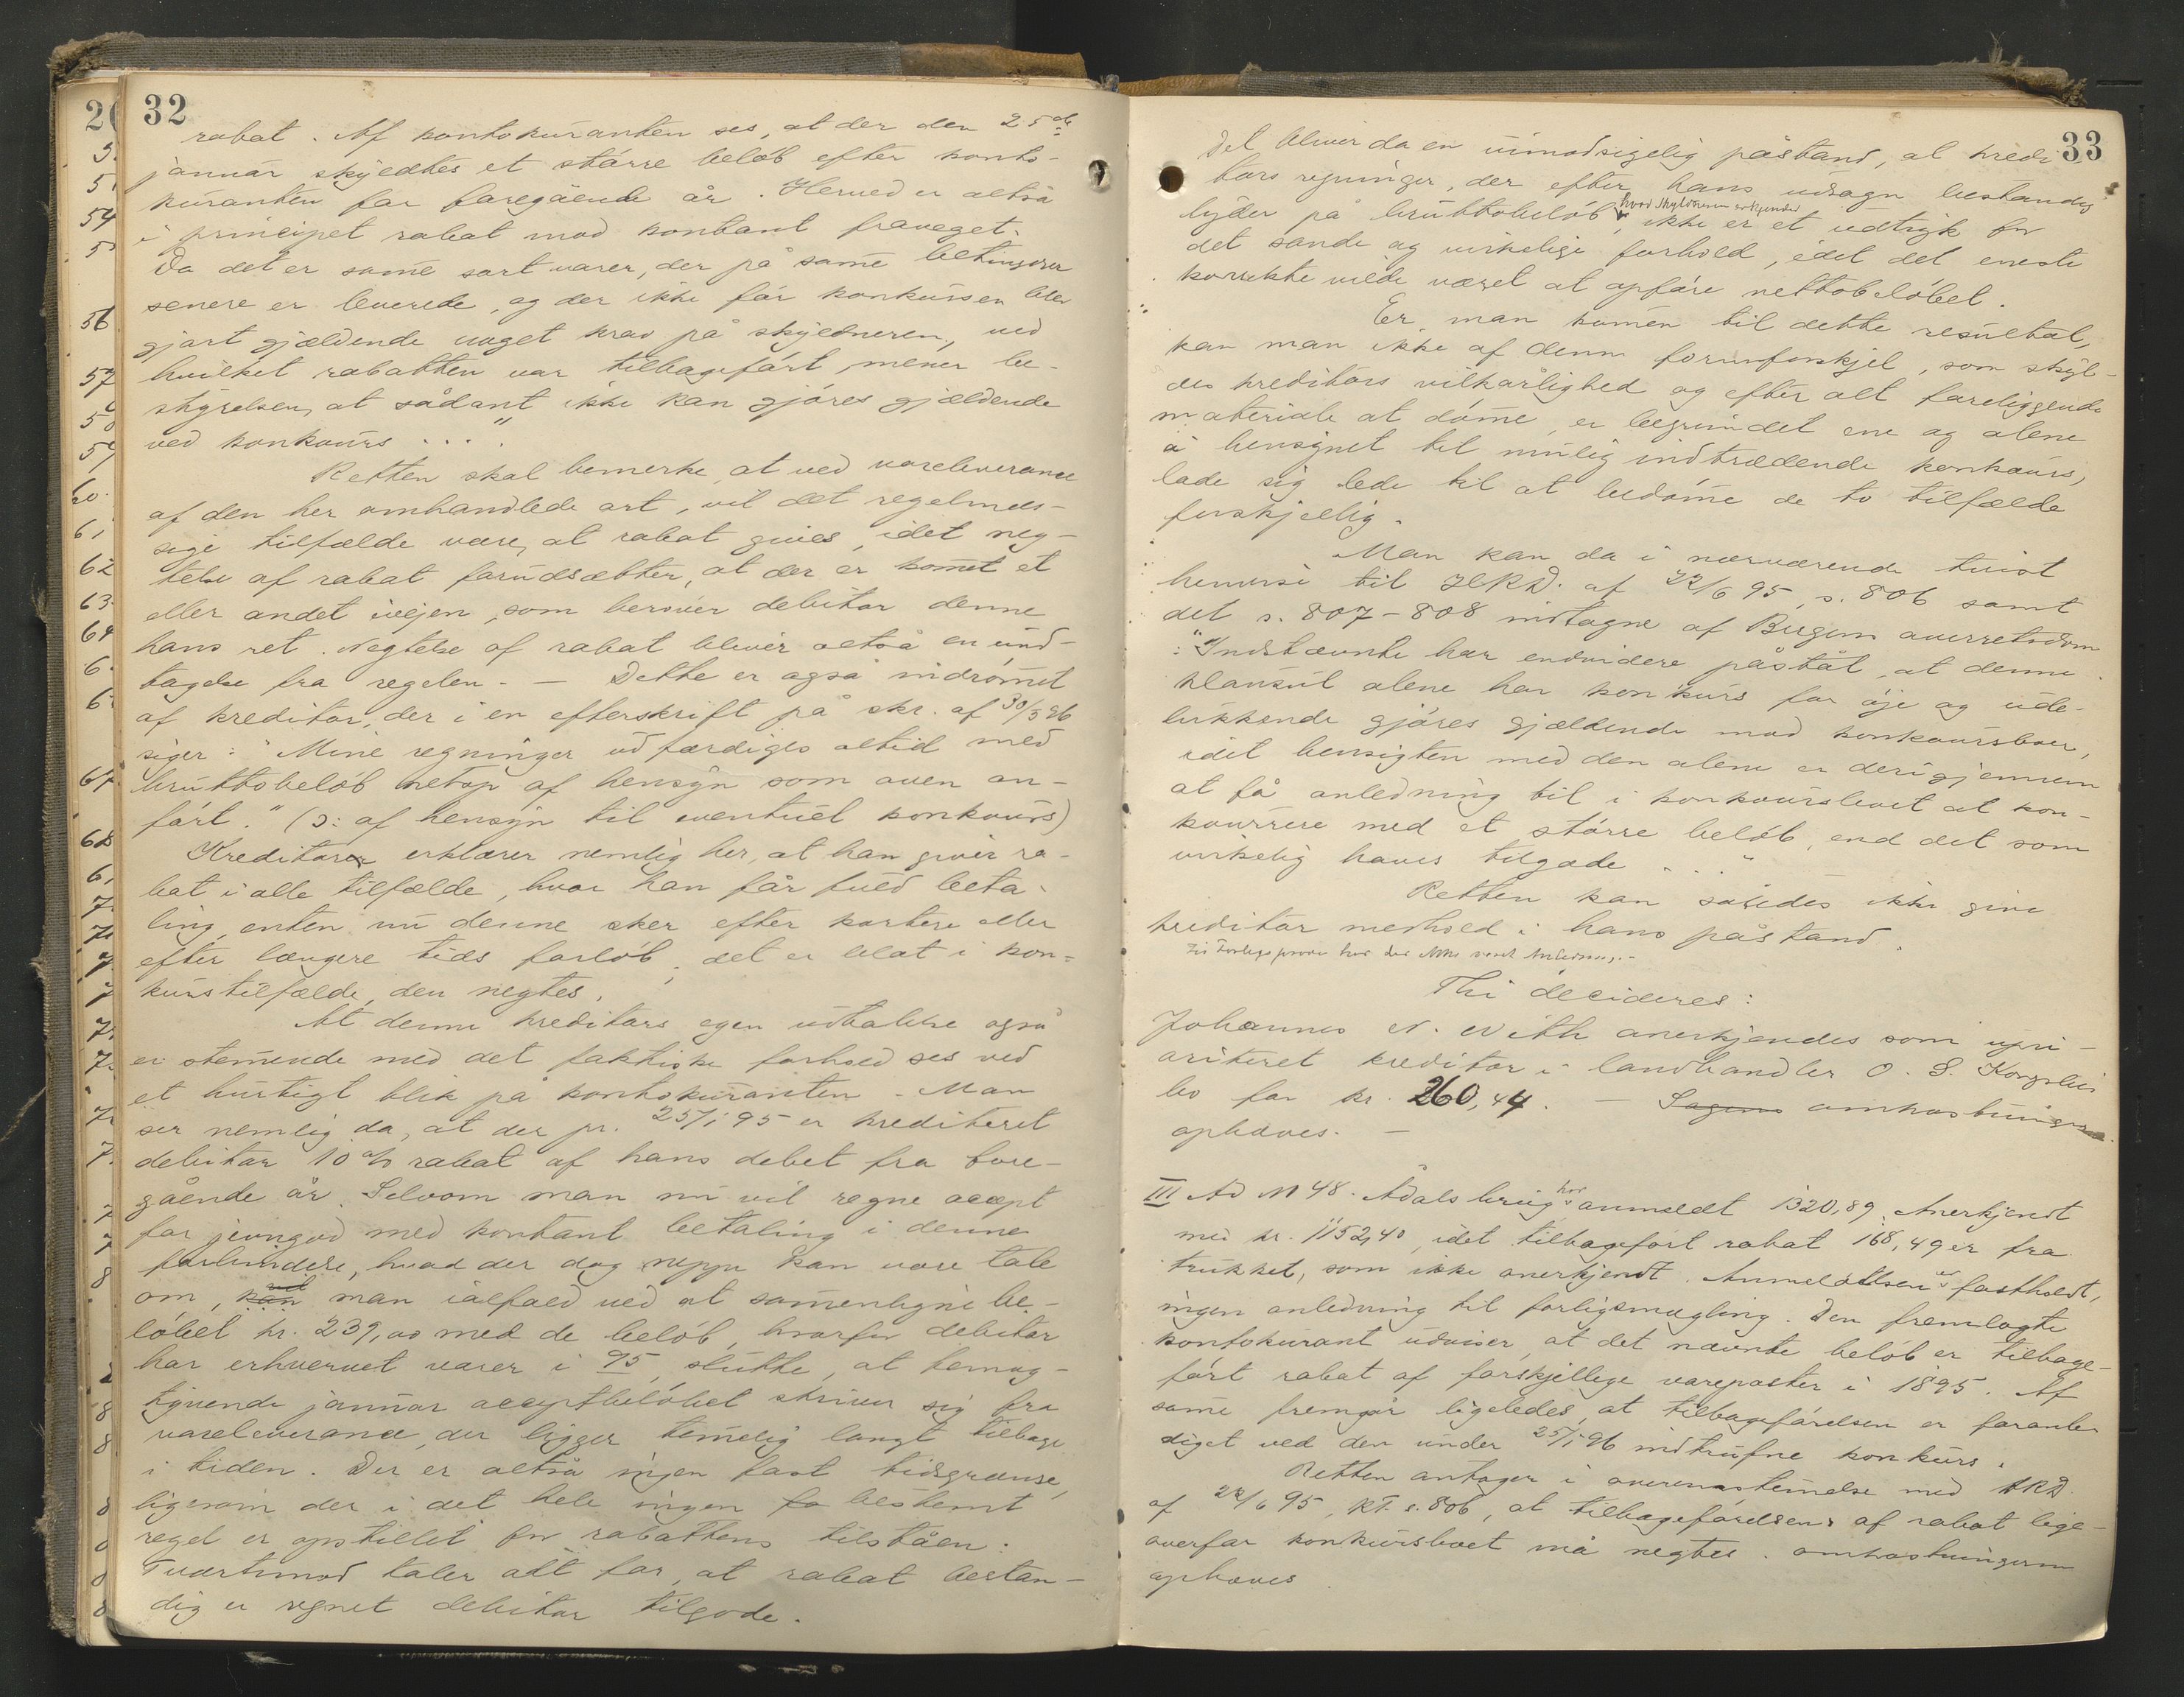 32
rabat. Af kontokuranten ses, at der den 25de
januar skyldtes et större belöb efter konto-
kuranten for foregående år. Herved er altså
i principet rabat mod kontant fraveget.
Da det er same sort varer, der på same betingelser
senere er leverede, og der ikke för konkursen blev
gjort gjældende noget krav på skyldneren, ved
hvilket rabatten var tilbageført, mener be-
styrelsen, at sådant ikke kan gjöres gjældende
ved konkurs ...."
Retten skal bemerke, at ved vareleverance
af den her omhandlede art, vil det regelmes-
sige tilfælde være, at rabat gives, idet neg-
telse af rabat forudsætter, at der er komet et
eller andet ivejen, som beröver debitor denne
hans ret. Negtelse af rabat bliver altså en und-
tagelse fra regelen. — Dette er også indrömet
af kreditor, der i en efterskrift på skr. af 30/5 96
siger: "Mine regninger udfærdiges altid med
bruttobelöb netop af hensyn som oven an-
fört." (ɔ: af hensyn til eventuel konkurs)
Kreditor erklærer nemlig her, at han giver ra-
bat i alle tilfælde, hvor han får fuld beta-
ling, enten nu denne sker efter kortere eller
efter længere tids forlöb; det er blot i kon-
kurstilfælde, den negtes.
At denne kreditors egen udtalelse også
er stemende med det faktiske forhold ses ved
et hurtigt blik på kontokuranten. Man
ser nemlig da, at der pr. 25/1 95 er krediteret
debitor 10 % rabat af hans debet fra fore-
gående år. Selvom man nu vil regne accept
for jevngod med kontant betaling i denne
forbindelse, hvad der dog neppe kan være tale
om, kan man ialfald ved at samenligne be-
löbet kr. 239,00 med de belöb, hvorfor debitor
har erhvervet varer i 95, slutte, at hemog-
tyvende januar acceptbelöbet skriver sig fra
vareleverance, der ligger temelig langt tilbage
i tiden. Der er altså ingen fast tidsgrænse,
ligesom der i det hele ingen fo bestemt
regel er opstillet for rabattens tilståen.
Tvertimod taler alt for, at rabat bestan-
dig er regnet debitor tilgode.
33
Det bliver da en uimodsigelig påstand, at kredi-
tors regninger, der efter hans udsagn bestandig
lyder på bruttobelöb, ikke er et udtryk for
hvad skyldneren
det sande og virkelige forhold, idet det eneste
korrekte vilde været at opföre nettobelöbet.
Er man komen til dette resultat,
kan man ikke af denne formforskjel, som skyl-
des kreditors vilkårlighed og efter alt foreliggende
materiale at döme, er begrundet ene og alene
i hensynet til mulig indtrædende konkurs,
lade sig lede til at bedöme de to tilfælde
forskjellig.
Man kan da i nærværende tvist
henvise til HRD. af 22/6 95, s. 806 samt
det s. 807-808 indtagne af Bergens overretsdom
: "Indstævnte har endvidere påstået, at denne
klausul alene har konkurs for öje og ude-
lukkende gjöres gjældende mod konkursboer,
idet hensigten med den alene er derigjennem
at få anledning til i konkursboet at kon-
kurrere med et större belöb, end det som
virkelig haves tilgode ..."
Retten kan således ikke give
kreditor medhold i hans påstand.
Til forligsprøve har der ikke været anledning.-
Thi decideres:
Johannes N. With anerkjendes som upri-
oriteret kreditor i landhandler O. S.
bo for kr. 260,44. — Sagens omkostninger
ophæves. —
III Ad № 48. Ådals brug har anmeldt 1320,89. Anerkjendt
med kr. 1152,40, idet tilbageført rabat 168,49 er fra
trukket, som ikke anerkjendt. Anmeldelsen er fastholdt,
ingen anledning til forligsmægling. Den fremlagte
kontokurant udviser, at det nævnte belöb er tilbage-
fört rabat af forskjellige vareposter i 1895. Af
same fremgår ligeledes, at tilbageförelsen er foranle-
diget ved den under 25/1 96 indtrufne konkurs.
Retten antager i overenstemelse med HRD.
af 22/6 95, RT. s. 806, at tilbageförelsen af rabat lige-
overfor konkursboet må negtes. Omkostningerne
ophæves.